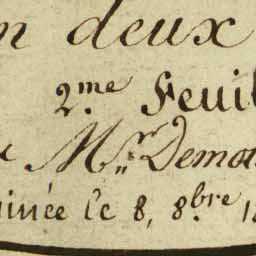 n deux
2.me Feuil
M.r Demou
inée le 8, 8.bre 1